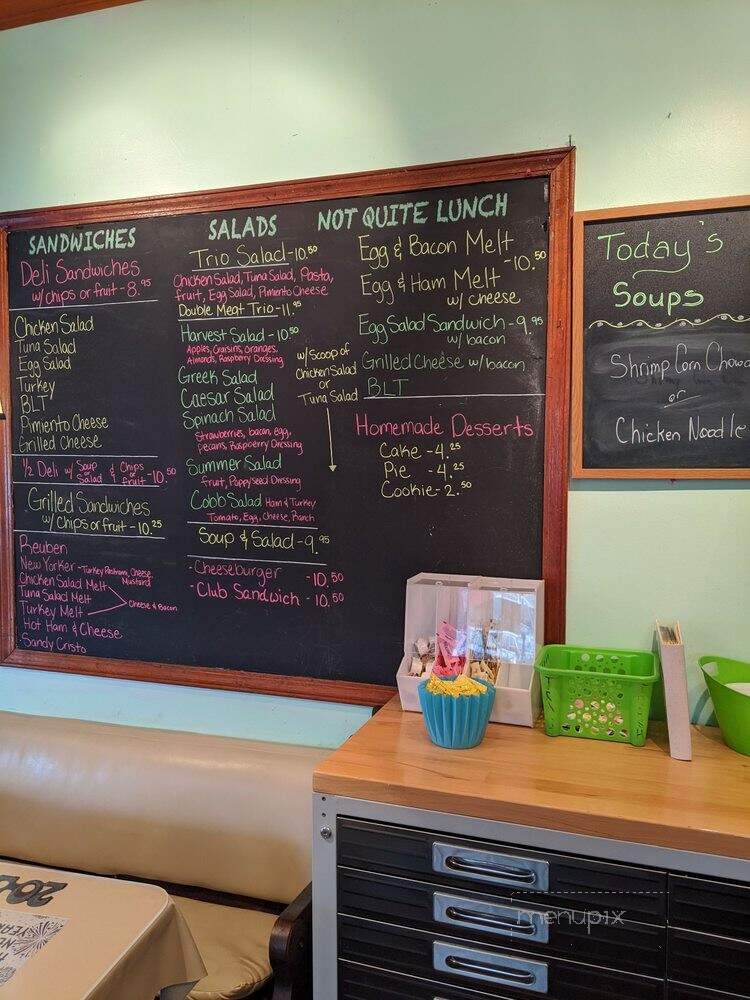 SANDWICHES
Deli Sandwiches
w/ chips or fruit - 8.95
Chicken Salad
Tuna Salad
Egg Salad
Turkey
BLT
Pimiento Cheese
Grilled Cheese
1/2 Deli w/ Soup or Salad & Chips or fruit - 10.50
Grilled Sandwiches
w/ Chips or fruit - 10.25
Reuben
New Yorker - Turkey Pastrami, Cheese,
Mustard
Chicken Salad Melt
Tuna Salad Melt
Turkey Melt
Cheese & Bacon
Hot Ham & Cheese
Sandy Cristo
SALADS
Trio Salad - 10.50
Chicken Salad, Tuna Salad, Pasta,
fruit, Egg Salad, Pimiento Cheese
Double Meat Trio - 11.95
Harvest Salad - 10.50
Apples, Craisins, Oranges,
Almonds, Raspberry Dressing
Greek Salad
Caesar Salad
Spinach Salad
Strawberries, bacon, egg,
pecans, Raspberry Dressing
Summer Salad
fruit, Poppyseed Dressing
Cobb Salad Ham & Turkey
Tomato, Egg, Cheese, Ranch
w/ scoop of
Chicken Salad
or
Tuna Salad
Soup & Salad - 9.95
- Cheeseburger - 10.50
- Club Sandwich - 10.50
NOT QUITE LUNCH
Egg & Bacon Melt
- 10.50
Egg & Ham Melt
w/ cheese
Egg Salad Sandwich - 9.95
w/ bacon
Grilled Cheese w/ bacon
BLT
Homemade Desserts
Cake - 4.25
Pie - 4.25
Cookie - 2.50
Today's
Soups
Shrimp Corn Chowd
or
Chicken Noodle
menupix